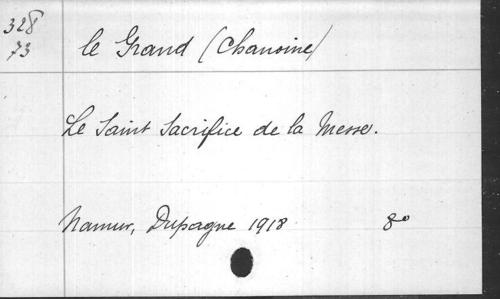 328
73
le Grand (Chanoine)
Le Saint Sacrifice de la Messe.
Namur, Dupagne 1918 8°